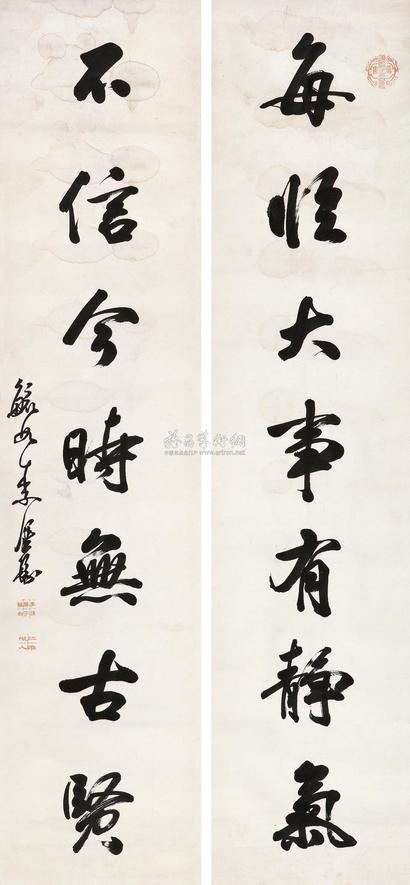 每临大事有静氣
不信今時無古賢
雅昌藝術網
www.artron.net